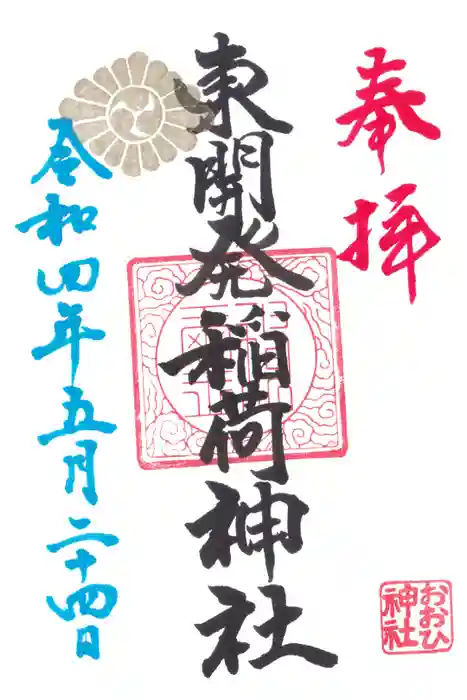 奉拝
東開発稲荷神社
令和四年五月二十四日
おおひ
神社